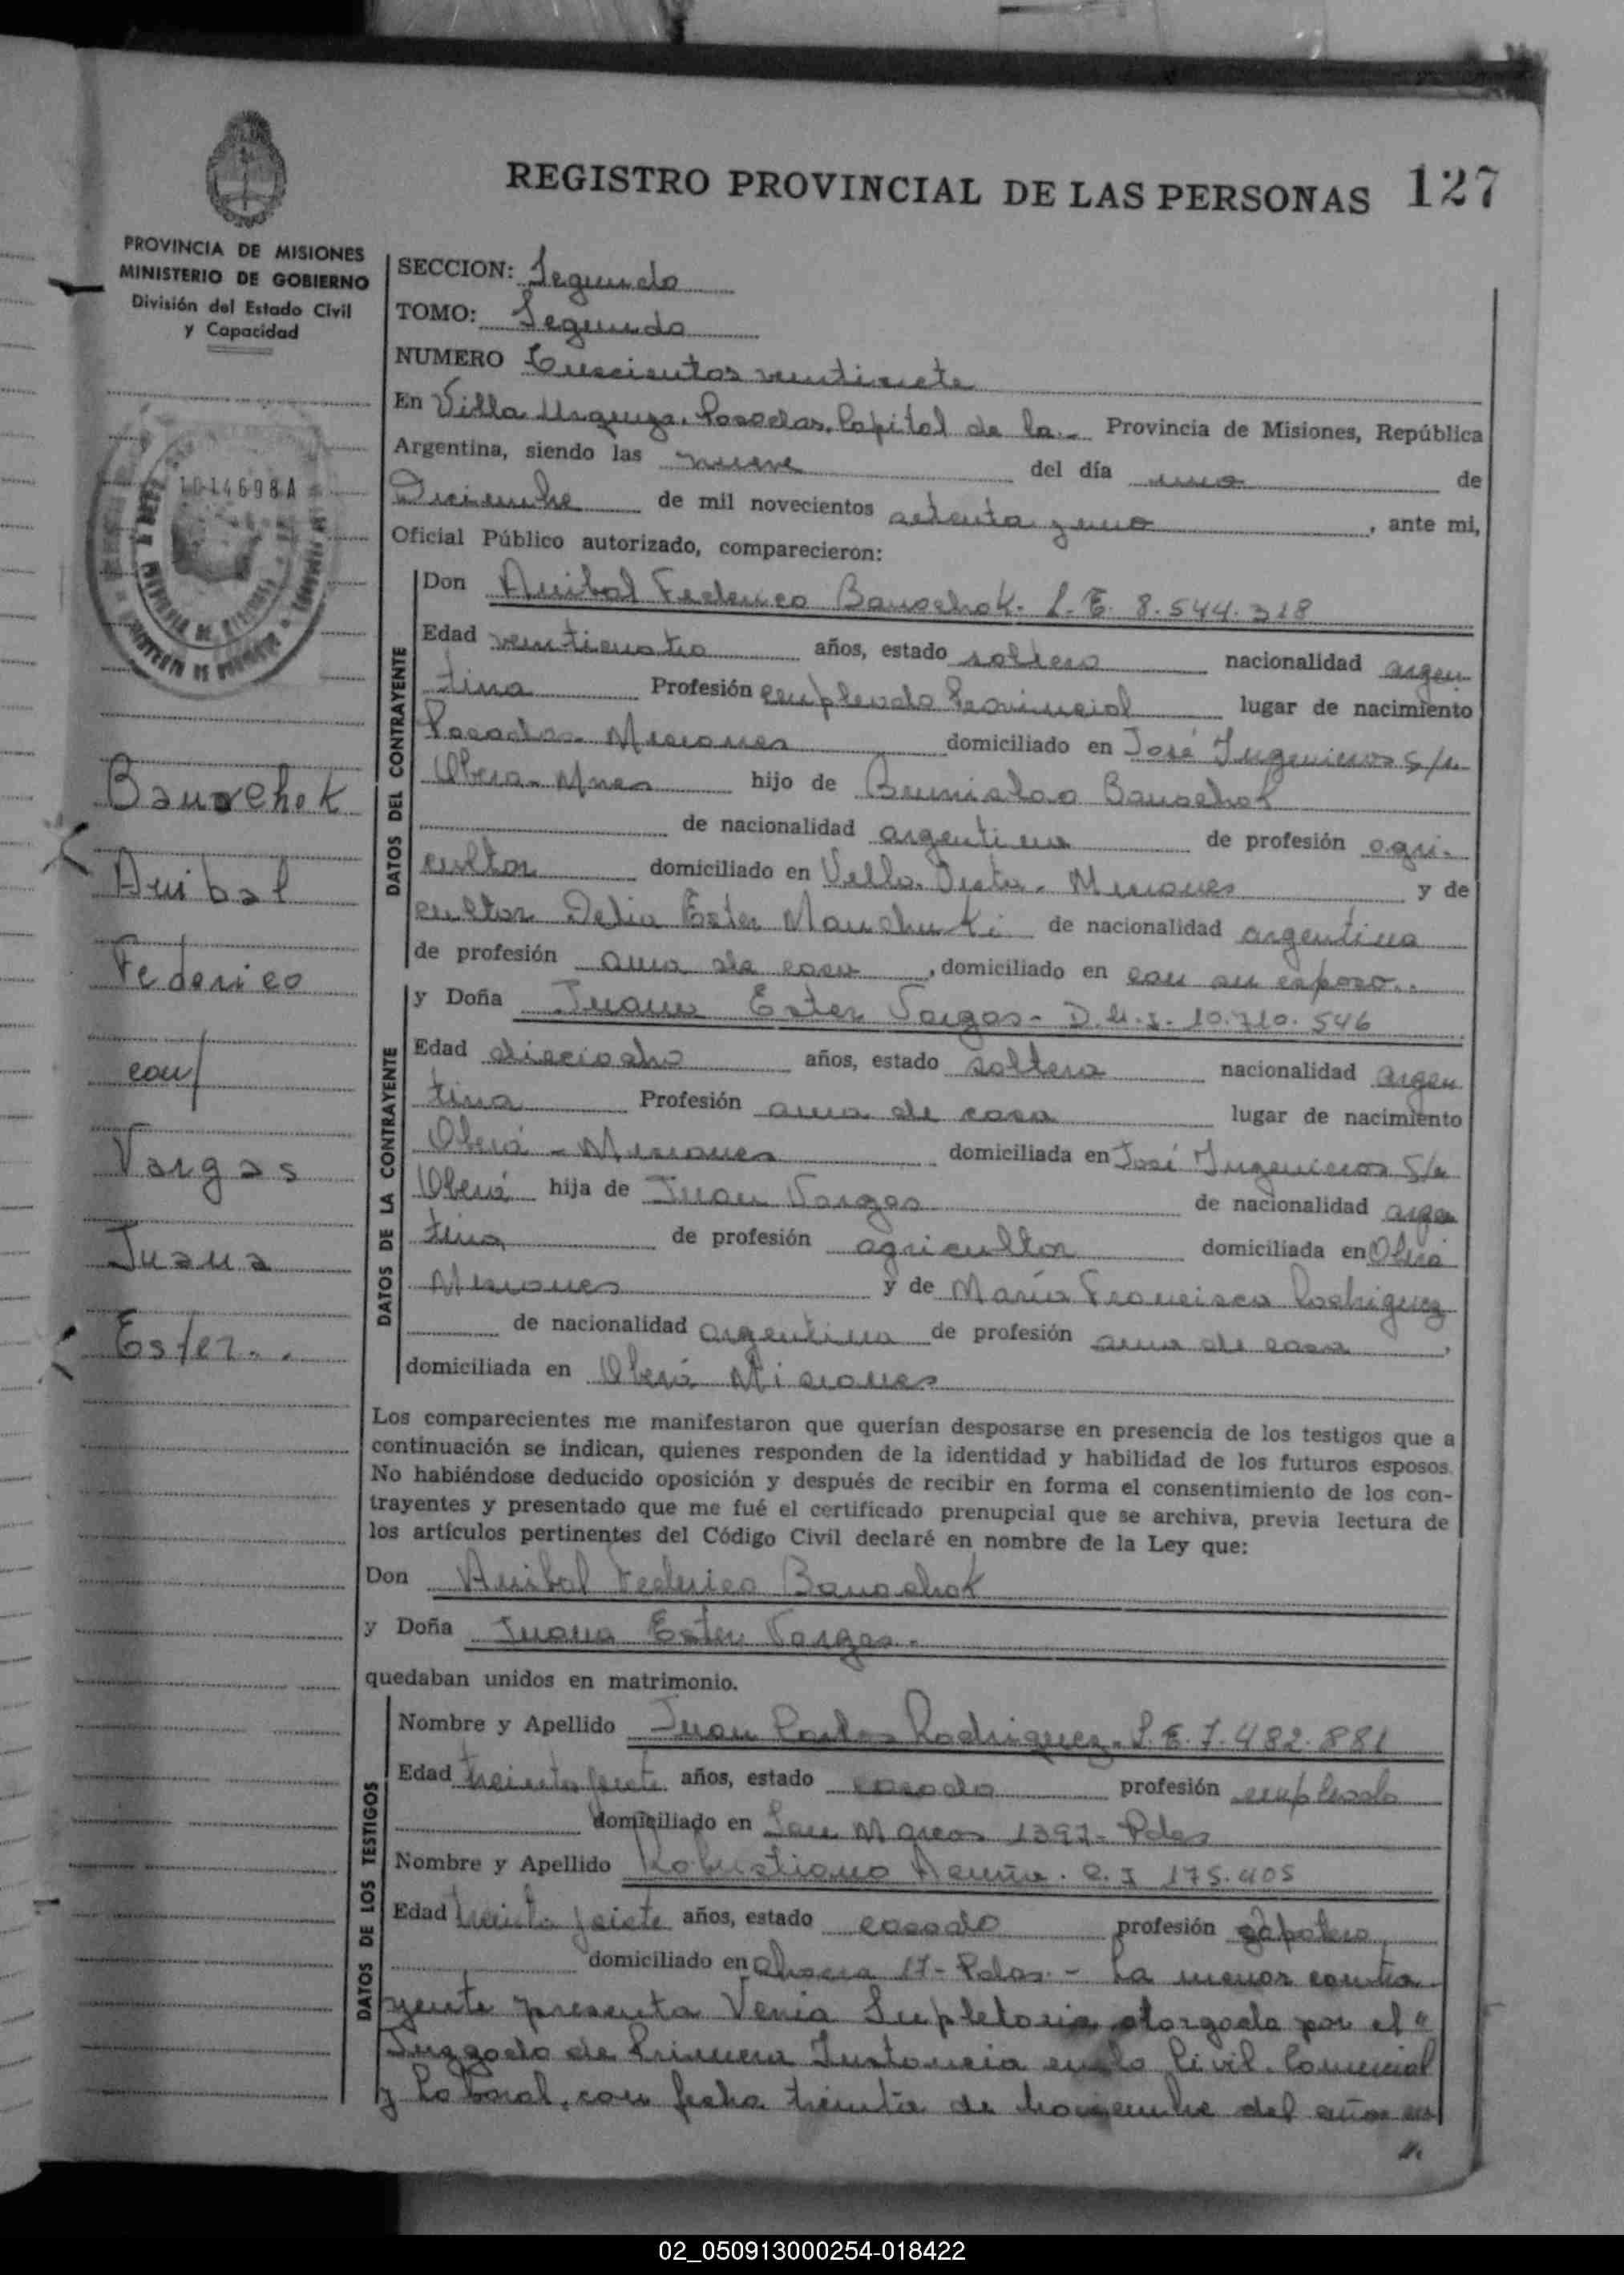 REGISTRO PROVINCIAL DE LAS PERSONAS 127
PROVINCIA DE MISIONES
MINISTERIO DE GOBIERNO
División del Estado Civil
y Capacidad
1014698A
Bauschek
Anibal
Federico
con/
Vargas
Juana
Ester..
SECCION: Segunda
TOMO: Segundo
NUMERO Doscientos veintisiete
En Villa Urquiza. Posadas, Capital de la.- Provincia de Misiones, República
Argentina, siendo las nueve del día uno de
Diciembre de mil novecientos setenta y uno, ante mi,
Oficial Público autorizado, comparecieron:
DATOS DEL CONTRAYENTE
Don Anibal Federico Bauschek. L.E. 8.544.318
Edad veinticuatro años, estado soltero nacionalidad argen
tina Profesión empleado Provincial lugar de nacimiento
Posadas Misiones domiciliado en José Ingenieros S/n
Oberá-Mnes hijo de Bauschek
de nacionalidad argentina de profesión agri-
cultor domiciliado en Misiones y de
cultor Delia Ester de nacionalidad argentina
de profesión ama de casa, domiciliado en con su esposo..
DATOS DE LA CONTRAYENTE
y Doña Juana Ester Vargas- D.N.I. 10.710.546
Edad dieciocho años, estado soltera nacionalidad argen
tina Profesión ama de casa lugar de nacimiento
Oberá - Misiones domiciliada en José Ingenieros S/n
Oberá hija de Juan Vargas de nacionalidad argen
tina de profesión agricultor domiciliada en Oberá
Misiones y de María Francisca Rodriguez
de nacionalidad argentina de profesión ama de casa,
domiciliada en Oberá Misiones
Los comparecientes me manifestaron que querían desposarse en presencia de los testigos que a
continuación se indican, quienes responden de la identidad y habilidad de los futuros esposos.
No habiéndose deducido oposición y después de recibir en forma el consentimiento de los con-
trayentes y presentado que me fué el certificado prenupcial que se archiva, previa lectura de
los artículos pertinentes del Código Civil declaré en nombre de la Ley que:
Don Anibal Federico Bauschek
y Doña Juana Ester Vargas.
quedaban unidos en matrimonio.
DATOS DE LOS TESTIGOS
Nombre y Apellido Juan Carlos Rodriguez. L.E. 7.482.881
Edad treinta siete años, estado casado profesión empleado
domiciliado en San Marcos 1397- Pdas
Nombre y Apellido Robustiano Acuña. C.I 175.405
Edad treinta siete años, estado casado profesión zapatero
domiciliado en Chacra 17- Pdas.- La menor contra
yente presenta Venia Supletoria otorgada por el "
Juzgado de Primera Instancia en lo Civil. Comercial
y Laboral, con fecha treinta de noviembre del año en
02_050913000254-018422